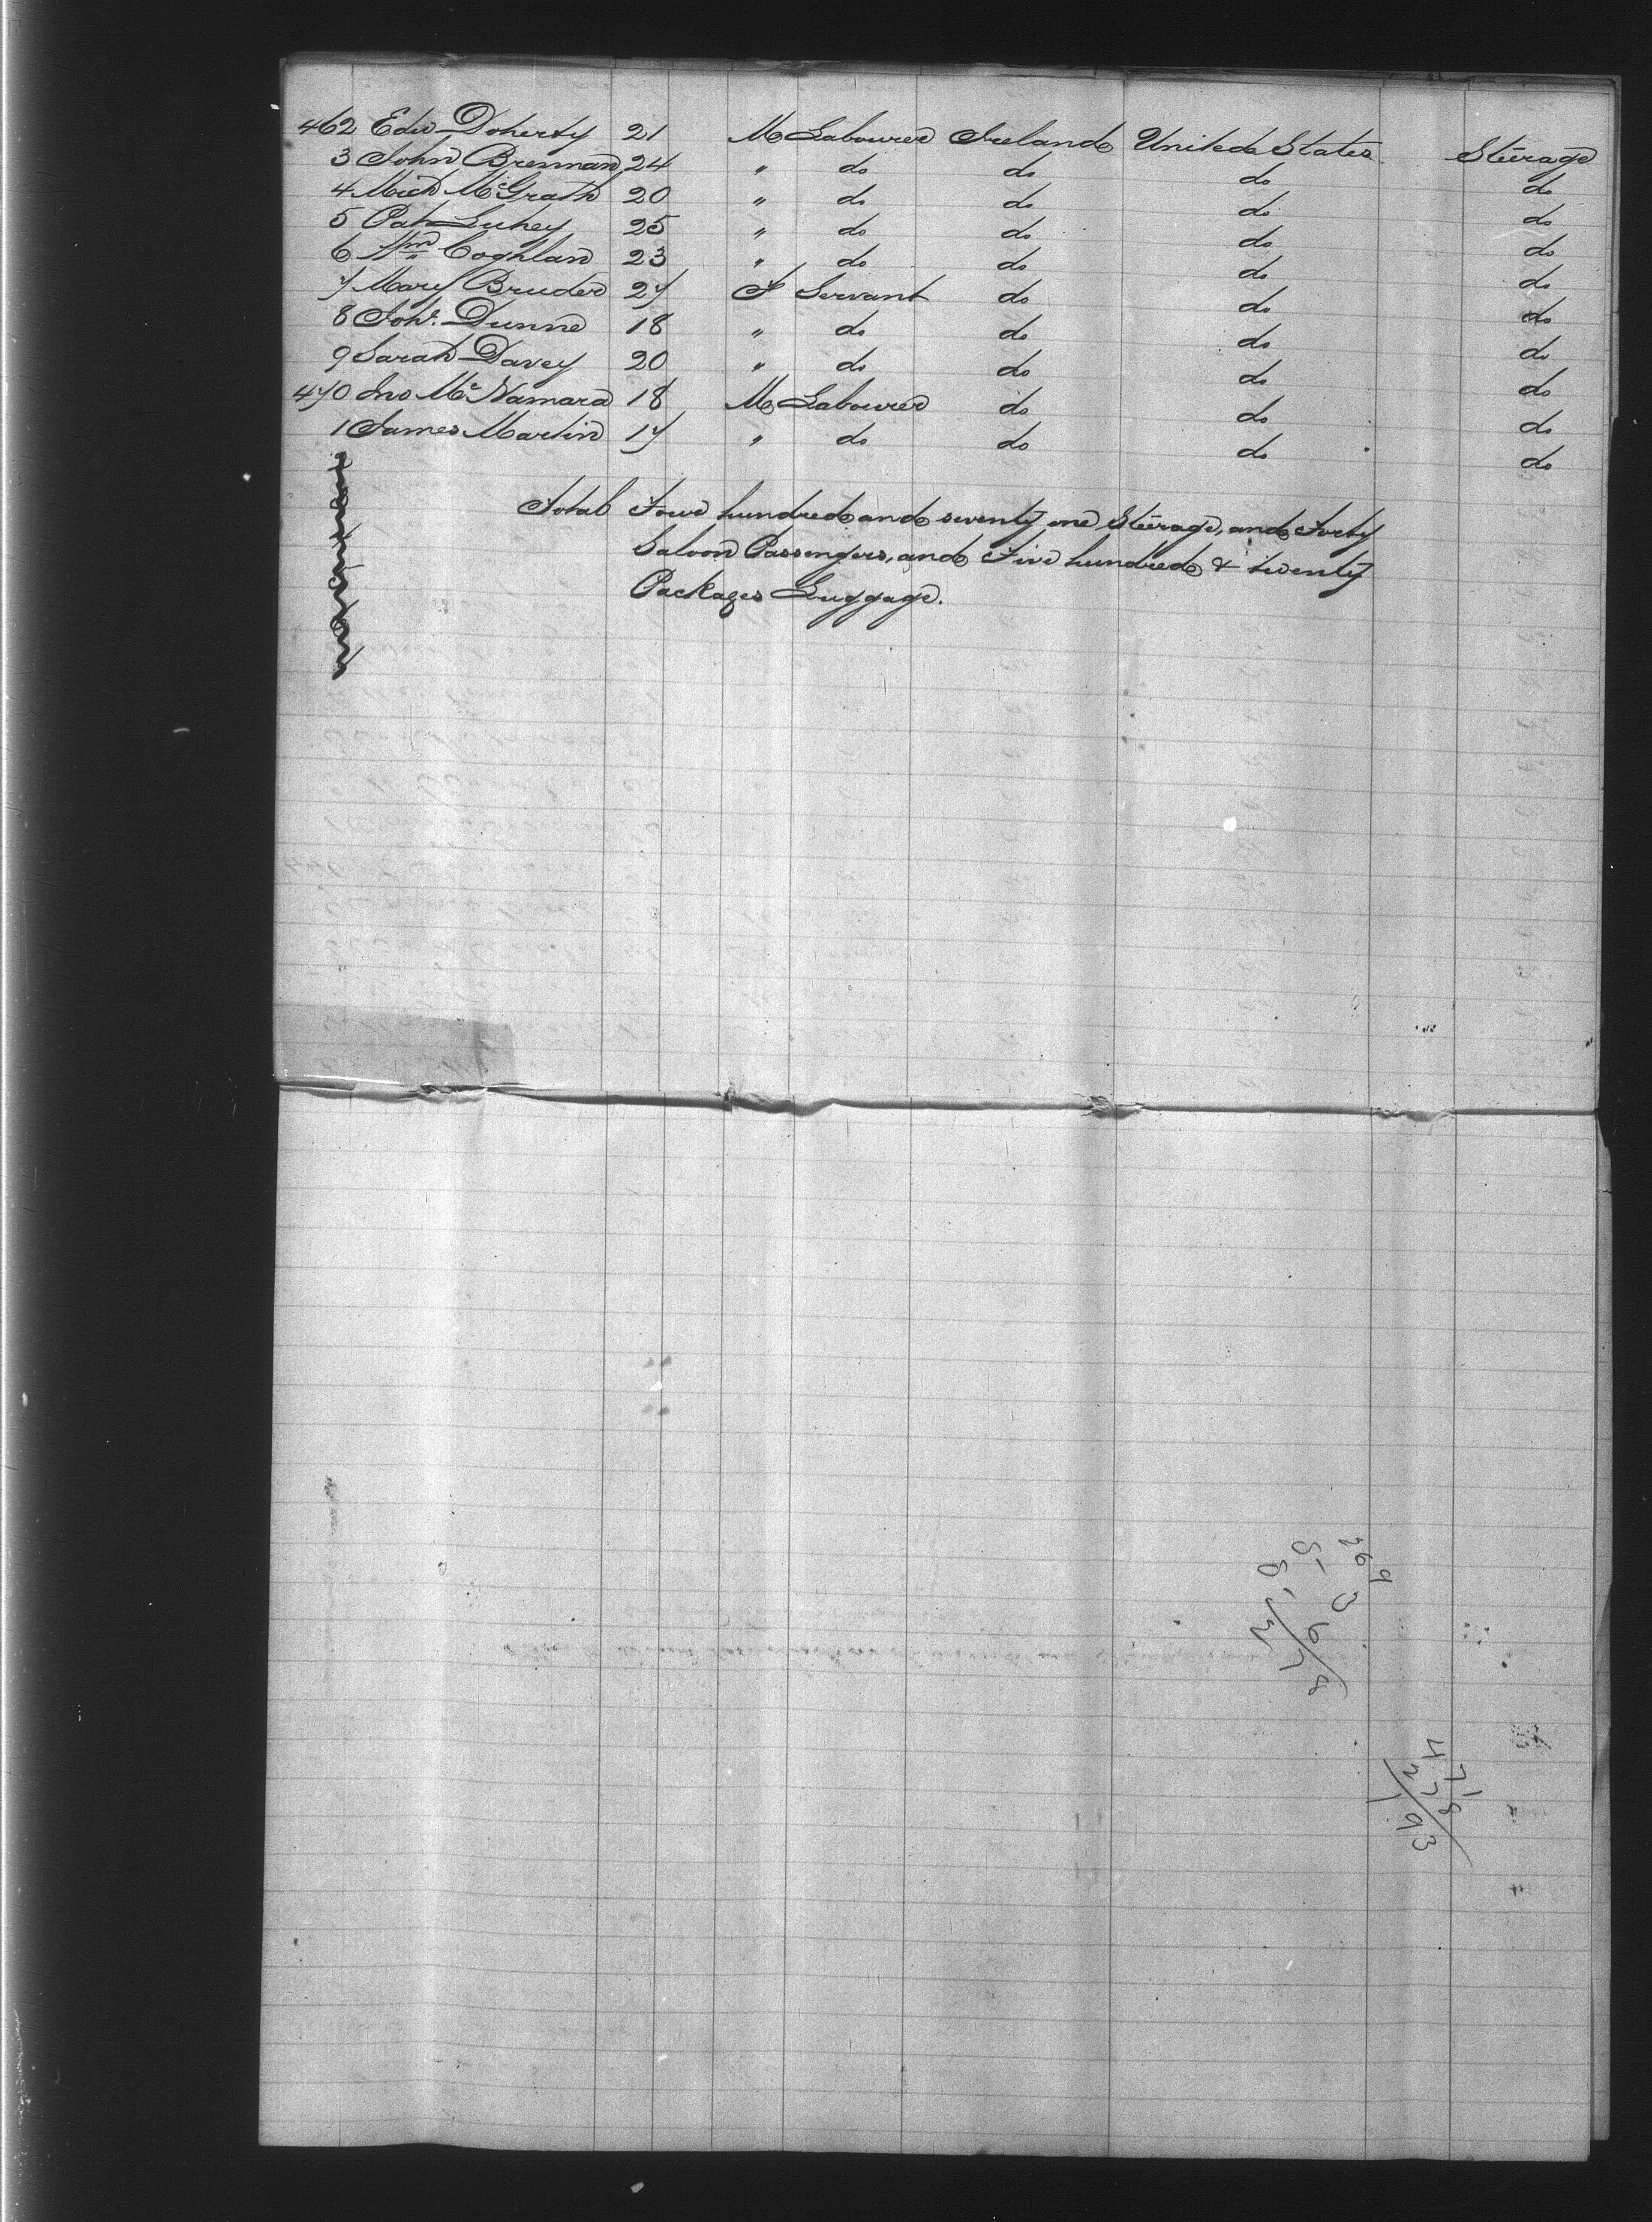 462 Edw Doherty 21 M Labourer Ireland United States Steerage
3 John Brennan 24 " do do do do
4 Mich McGrath 20 " do do do do
5 Pat Luhey 25 " do do do do
6 Wm Coghlan 23 " do do do do
7 Mary Bruder 27 F Servant do do do
8 Joh. Dunne 18 " do do do do
9 Sarah Davey 20 " do do do do
470 Jno McNamara 18 M Labourer do do do
1 James Martin 17 " do do do do
Total Four hundred and seventy one Steerage, and Forty
Saloon Passengers, and Five hundred & twenty
Packages Luggage.